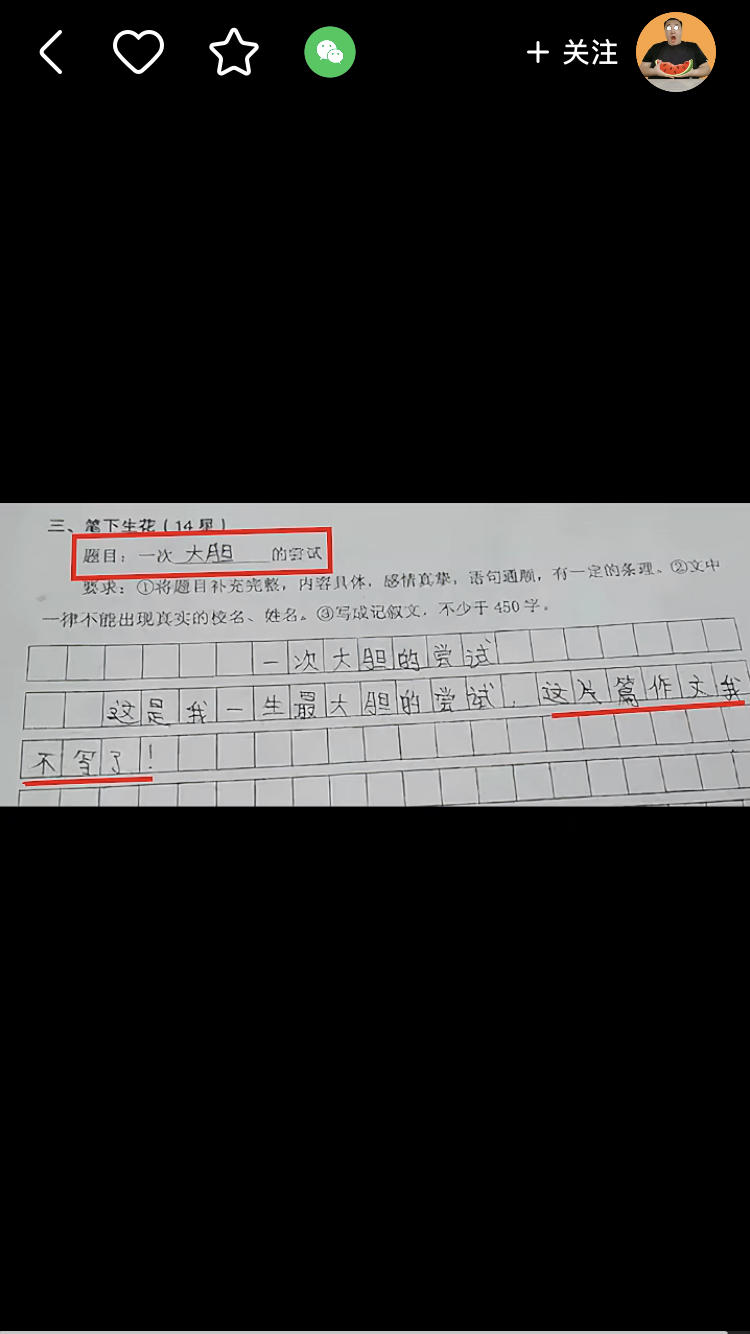 + 关注
三、笔下生花(14星)
题目：一次 大胆 的尝试
要求：①将题目补充完整，内容具体，感情真挚，语句通顺，有一定的条理。②文中
一律不能出现真实的校名、姓名。③写成记叙文，不少于450字。
一次大胆的尝试
这是我一生最大胆的尝试，这片篇作文我
不写了！